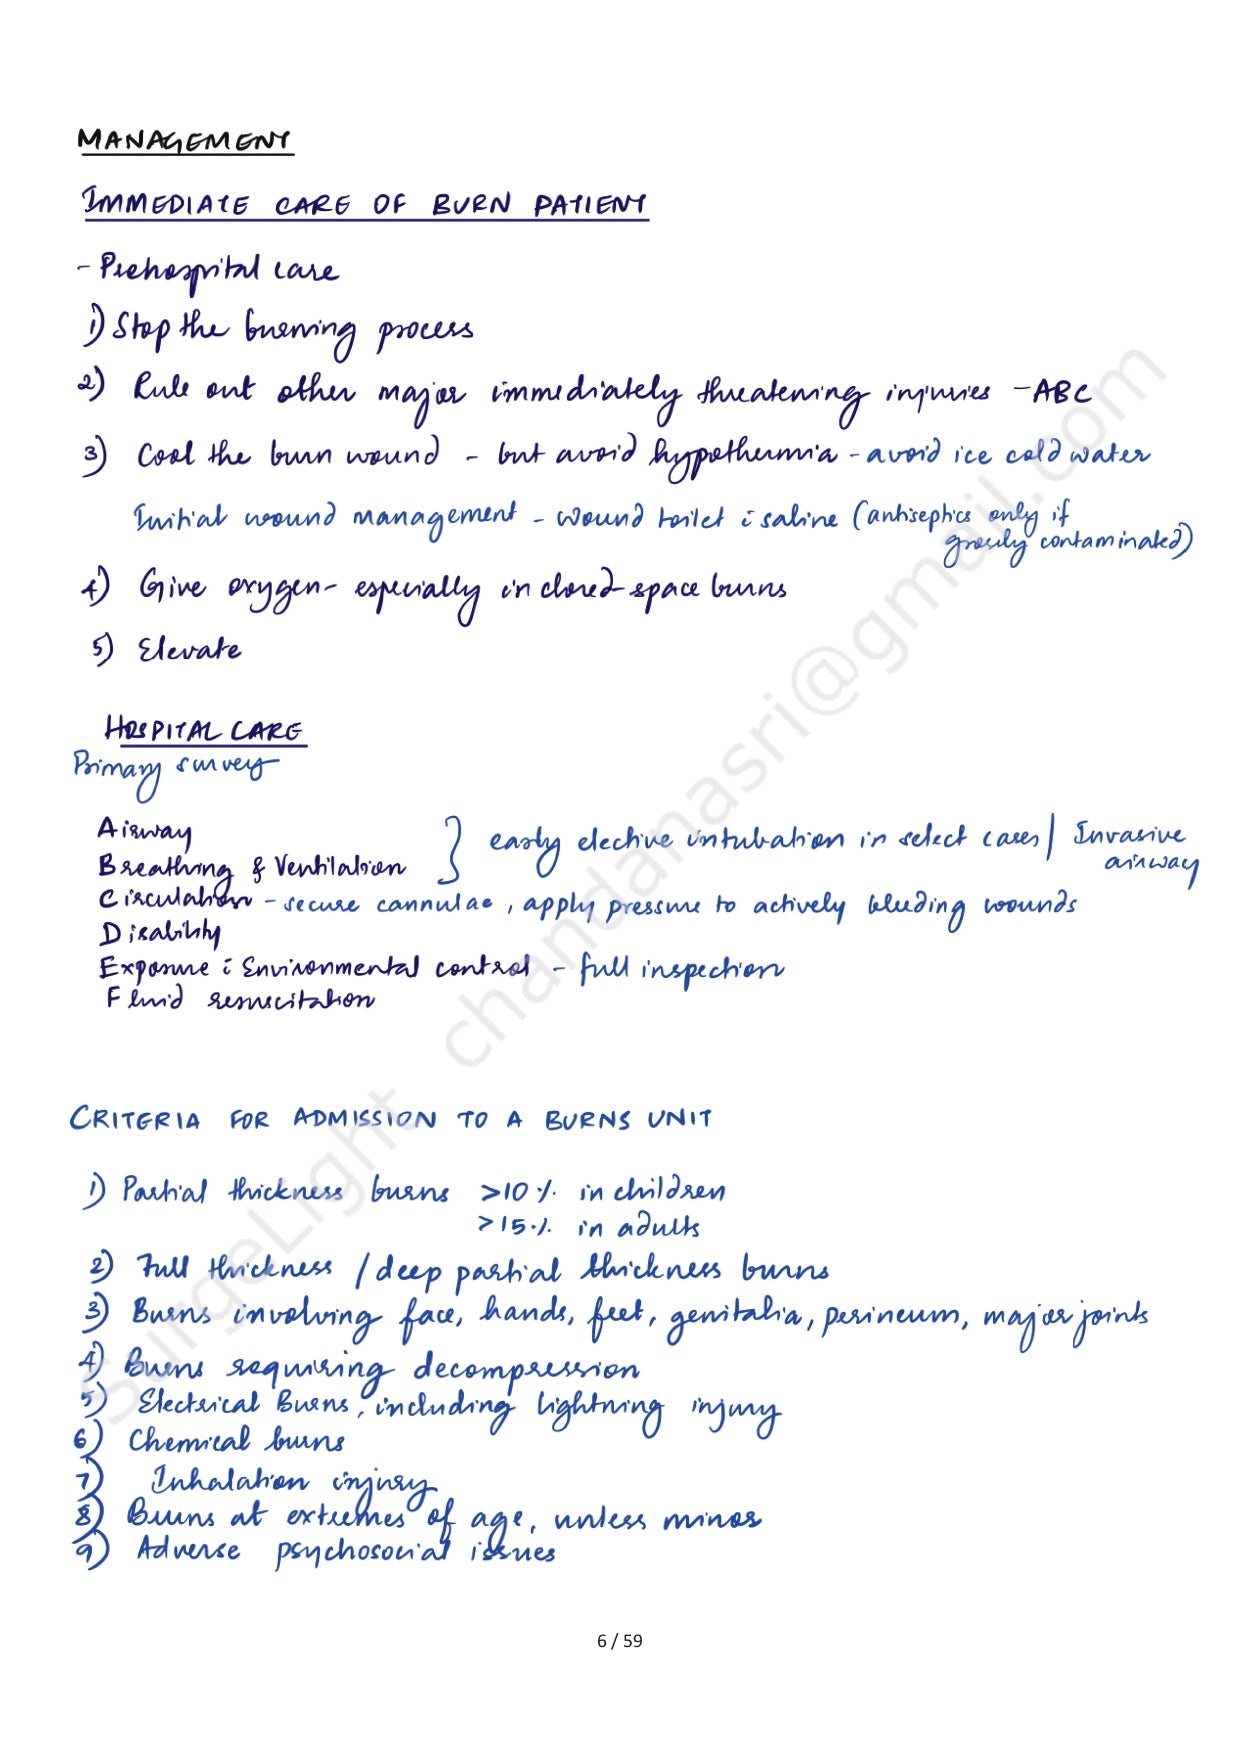 MANAGEMENT
IMMEDIATE CARE OF BURN PATIENT
- Prehospital care
1) Stop the burning process
2) Rule out other major immediately threatening injuries - ABC
3) Cool the burn wound - but avoid hypothermia - avoid ice cold water
Initial wound management - wound toilet c̄ saline (antiseptics only if
grossly contaminated)
4) Give oxygen - especially in closed-space burns
5) Elevate
HOSPITAL CARE
Primary survey
Airway
Breathing & Ventilation } early elective intubation in select cases / Invasive
airway
Circulation - secure cannulae, apply pressure to actively bleeding wounds
Disability
Exposure c̄ Environmental control - full inspection
Fluid resuscitation
CRITERIA FOR ADMISSION TO A BURNS UNIT
1) Partial thickness burns >10% in children
>15% in adults
2) Full thickness / deep partial thickness burns
3) Burns involving face, hands, feet, genitalia, perineum, major joints
4) Burns requiring decompression
5) Electrical Burns, including lightning injury
6) Chemical burns
7) Inhalation injury
8) Burns at extremes of age, unless minor
9) Adverse psychosocial issues
SurgeLight chandanasri@gmail.com
6 / 59